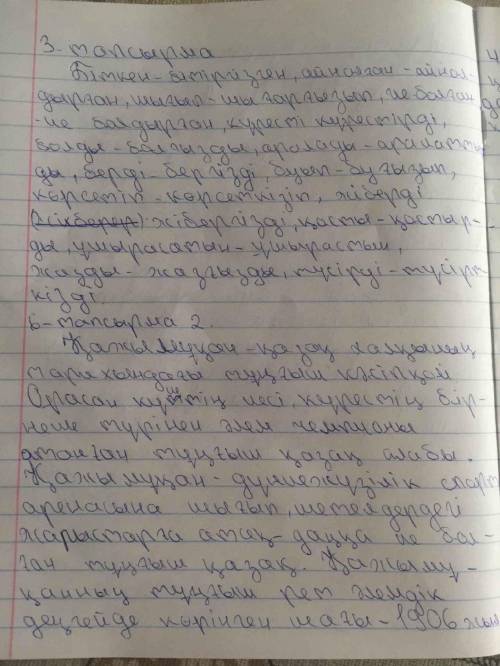 3-тапсырма
Біткен-бітірізген, айналған-айнал-
дырған, шығып-шығарғызып, ие болған
-ие болдырған, күресті күрестірді,
болды-болғызды, аралады-аралатты
ды, берді-бергізді, буып-буғызып,
көрсетіп-көрсеткізіп, жіберді
жібергізді, қосты-қостыр-
ды, ұшырасатын-ұшырастын,
жазды-жазғызды, түсірді-түсірт
кізді.
6-тапсырма 2.
Қажымұқан-қазақ халқының
тарихындағы тұңғыш кәсіпқой
Орасан күштің иесі, күрестің бір-
неше түрінен әлем чемпионы
атанған тұңғыш қазақ алыбы.
Қажымұқан-дүниежүзілік спорт
аренасына шығып, шетелдердегі
жарыстарға атақ-даңққа ие бол-
ған тұңғыш қазақ. Қажымұ-
қанның тұңғыш рет әлемдік
деңгейде көрінген шағы-1906 жыл